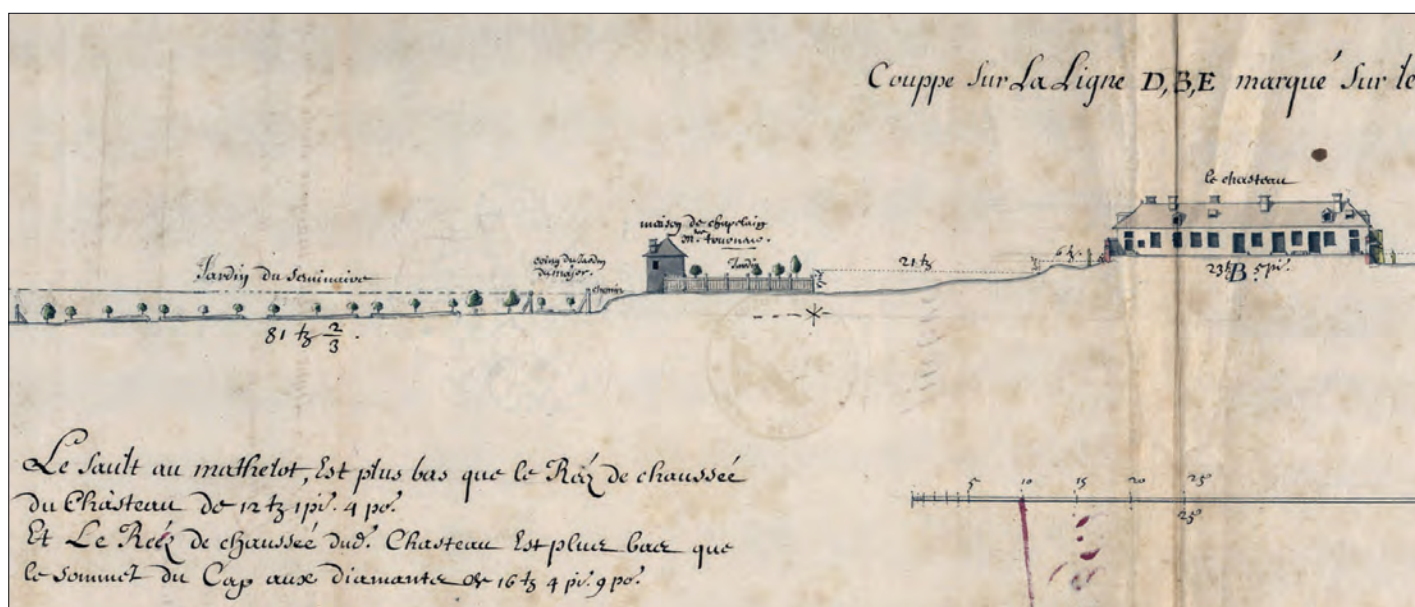 Couppe Sur La Ligne D,B,E marqué Sur le
le chasteau
maison de chapelain
Mr.
Jardin
coing du Jardin
du major.
chemin
Jardin du Seminaire
21 tz
6 tz
23 tz B. 5 pi.
81 tz 2/3.
Le Sault au mathelot, Est plus bas que le Réz de chaussée
du Chasteau de 12 tz 1 pi. 4 po.
Et Le Réz de chaussée dud. Chasteau Est plus bas que
le Sommet du Cap aux Diamants de 16 tz 4 pi. 9 po.
5 10 15 20 25
25